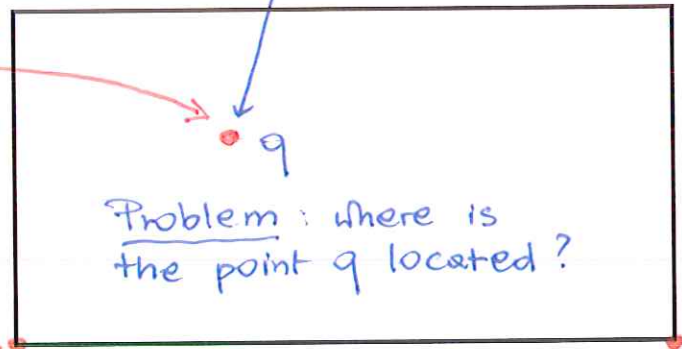 q
Problem : where is
the point q located ?